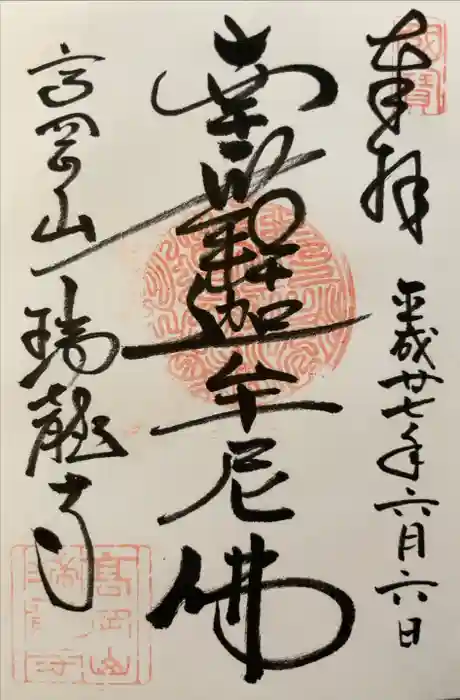 奉拝
平成廿七年六月六日
南無釋迦牟尼佛
高岡山瑞龍寺
國寶
高岡山瑞龍寺